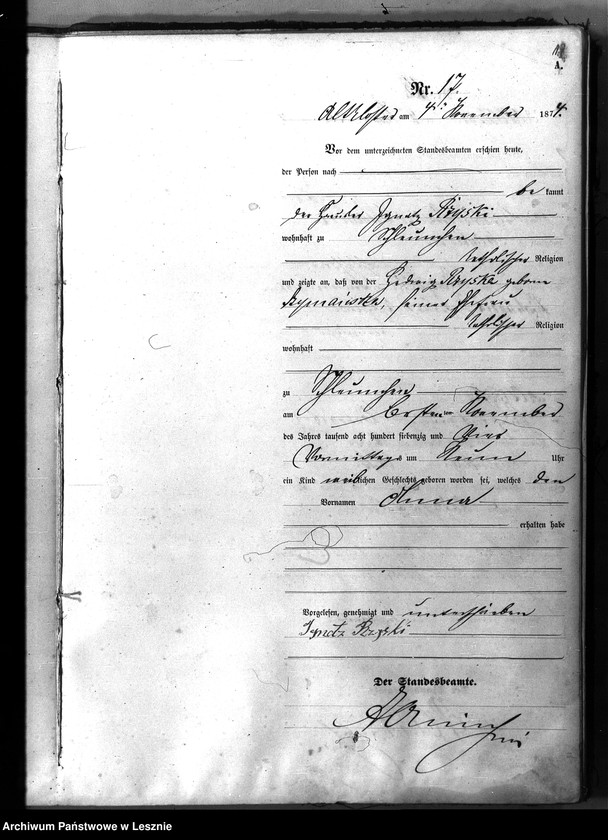 A.
Nr. 17.
Altkloster am 4. November 1874.
Vor dem unterzeichneten Standesbeamten erschien heute,
der Person nach
be kannt
der Ignatz
wohnhaft zu Schleunchen
katholischer Religion
und zeigte an, daß von der Hedwig geborne
seiner Ehefrau
katholischer Religion
wohnhaft
zu Schleunchen
am ersten November
des Jahres tausend acht hundert siebenzig und vier
Vormittags um Neun Uhr
ein Kind weiblichen Geschlechts geboren worden sei, welches den
Vornamen Anna
erhalten habe
Vorgelesen, genehmigt und unterschrieben
Ignatz
Der Standesbeamte.
Archiwum Państwowe w Lesznie